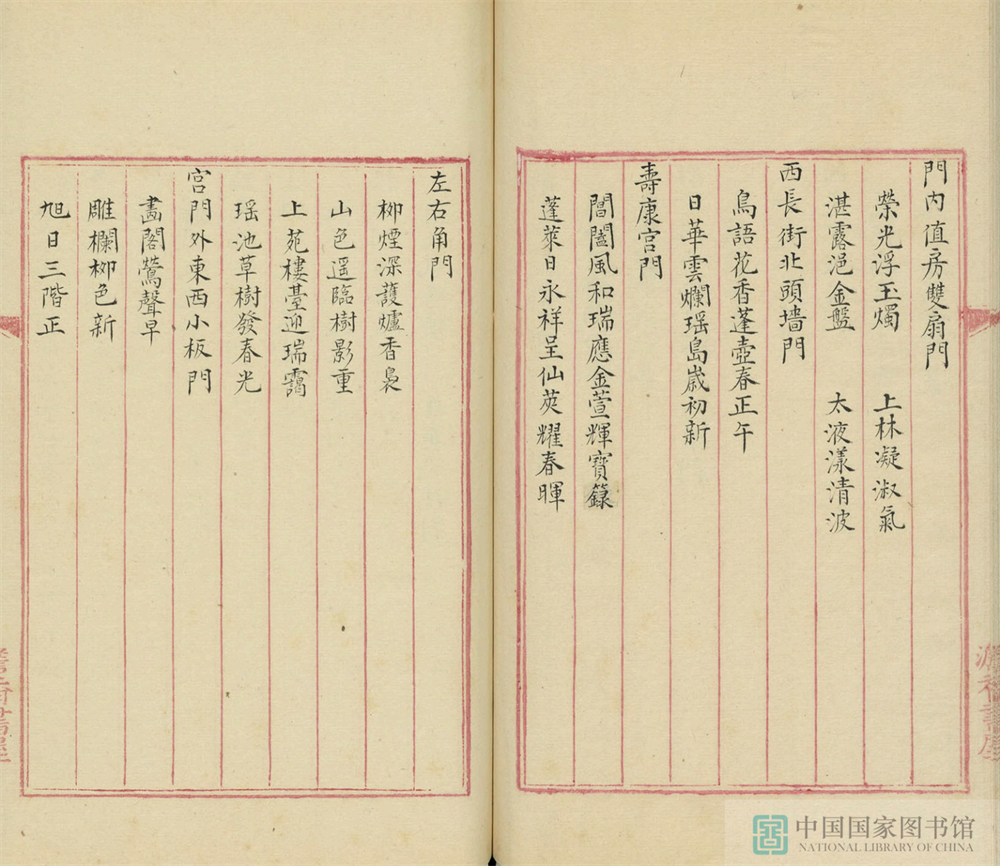 門內值房雙扇門
榮光浮玉燭　上林凝淑氣
湛露浥金盤　太液漾清波
西長街北頭墻門
鳥語花香蓬壺春正午
日華雲爛瑶島歲初新
壽康宮門
閶闔風和瑞應金萱輝寶籙
蓬萊日永祥呈仙莢耀春暉
左右角門
柳煙深護爐香裊
山色遥臨樹影重
上苑樓臺迎瑞靄
瑶池草樹發春光
宮門外東西小板門
畵閣鶯聲早
雕欄柳色新
旭日三階正
中国国家图书馆
NATIONAL LIBRARY OF CHINA